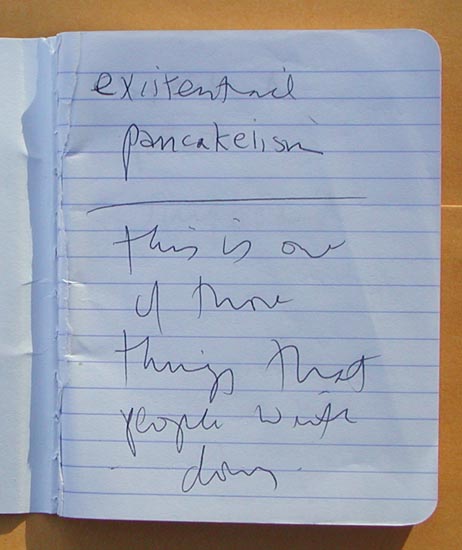 existential
pancakeiism
this is one
of those
things that
people write
down